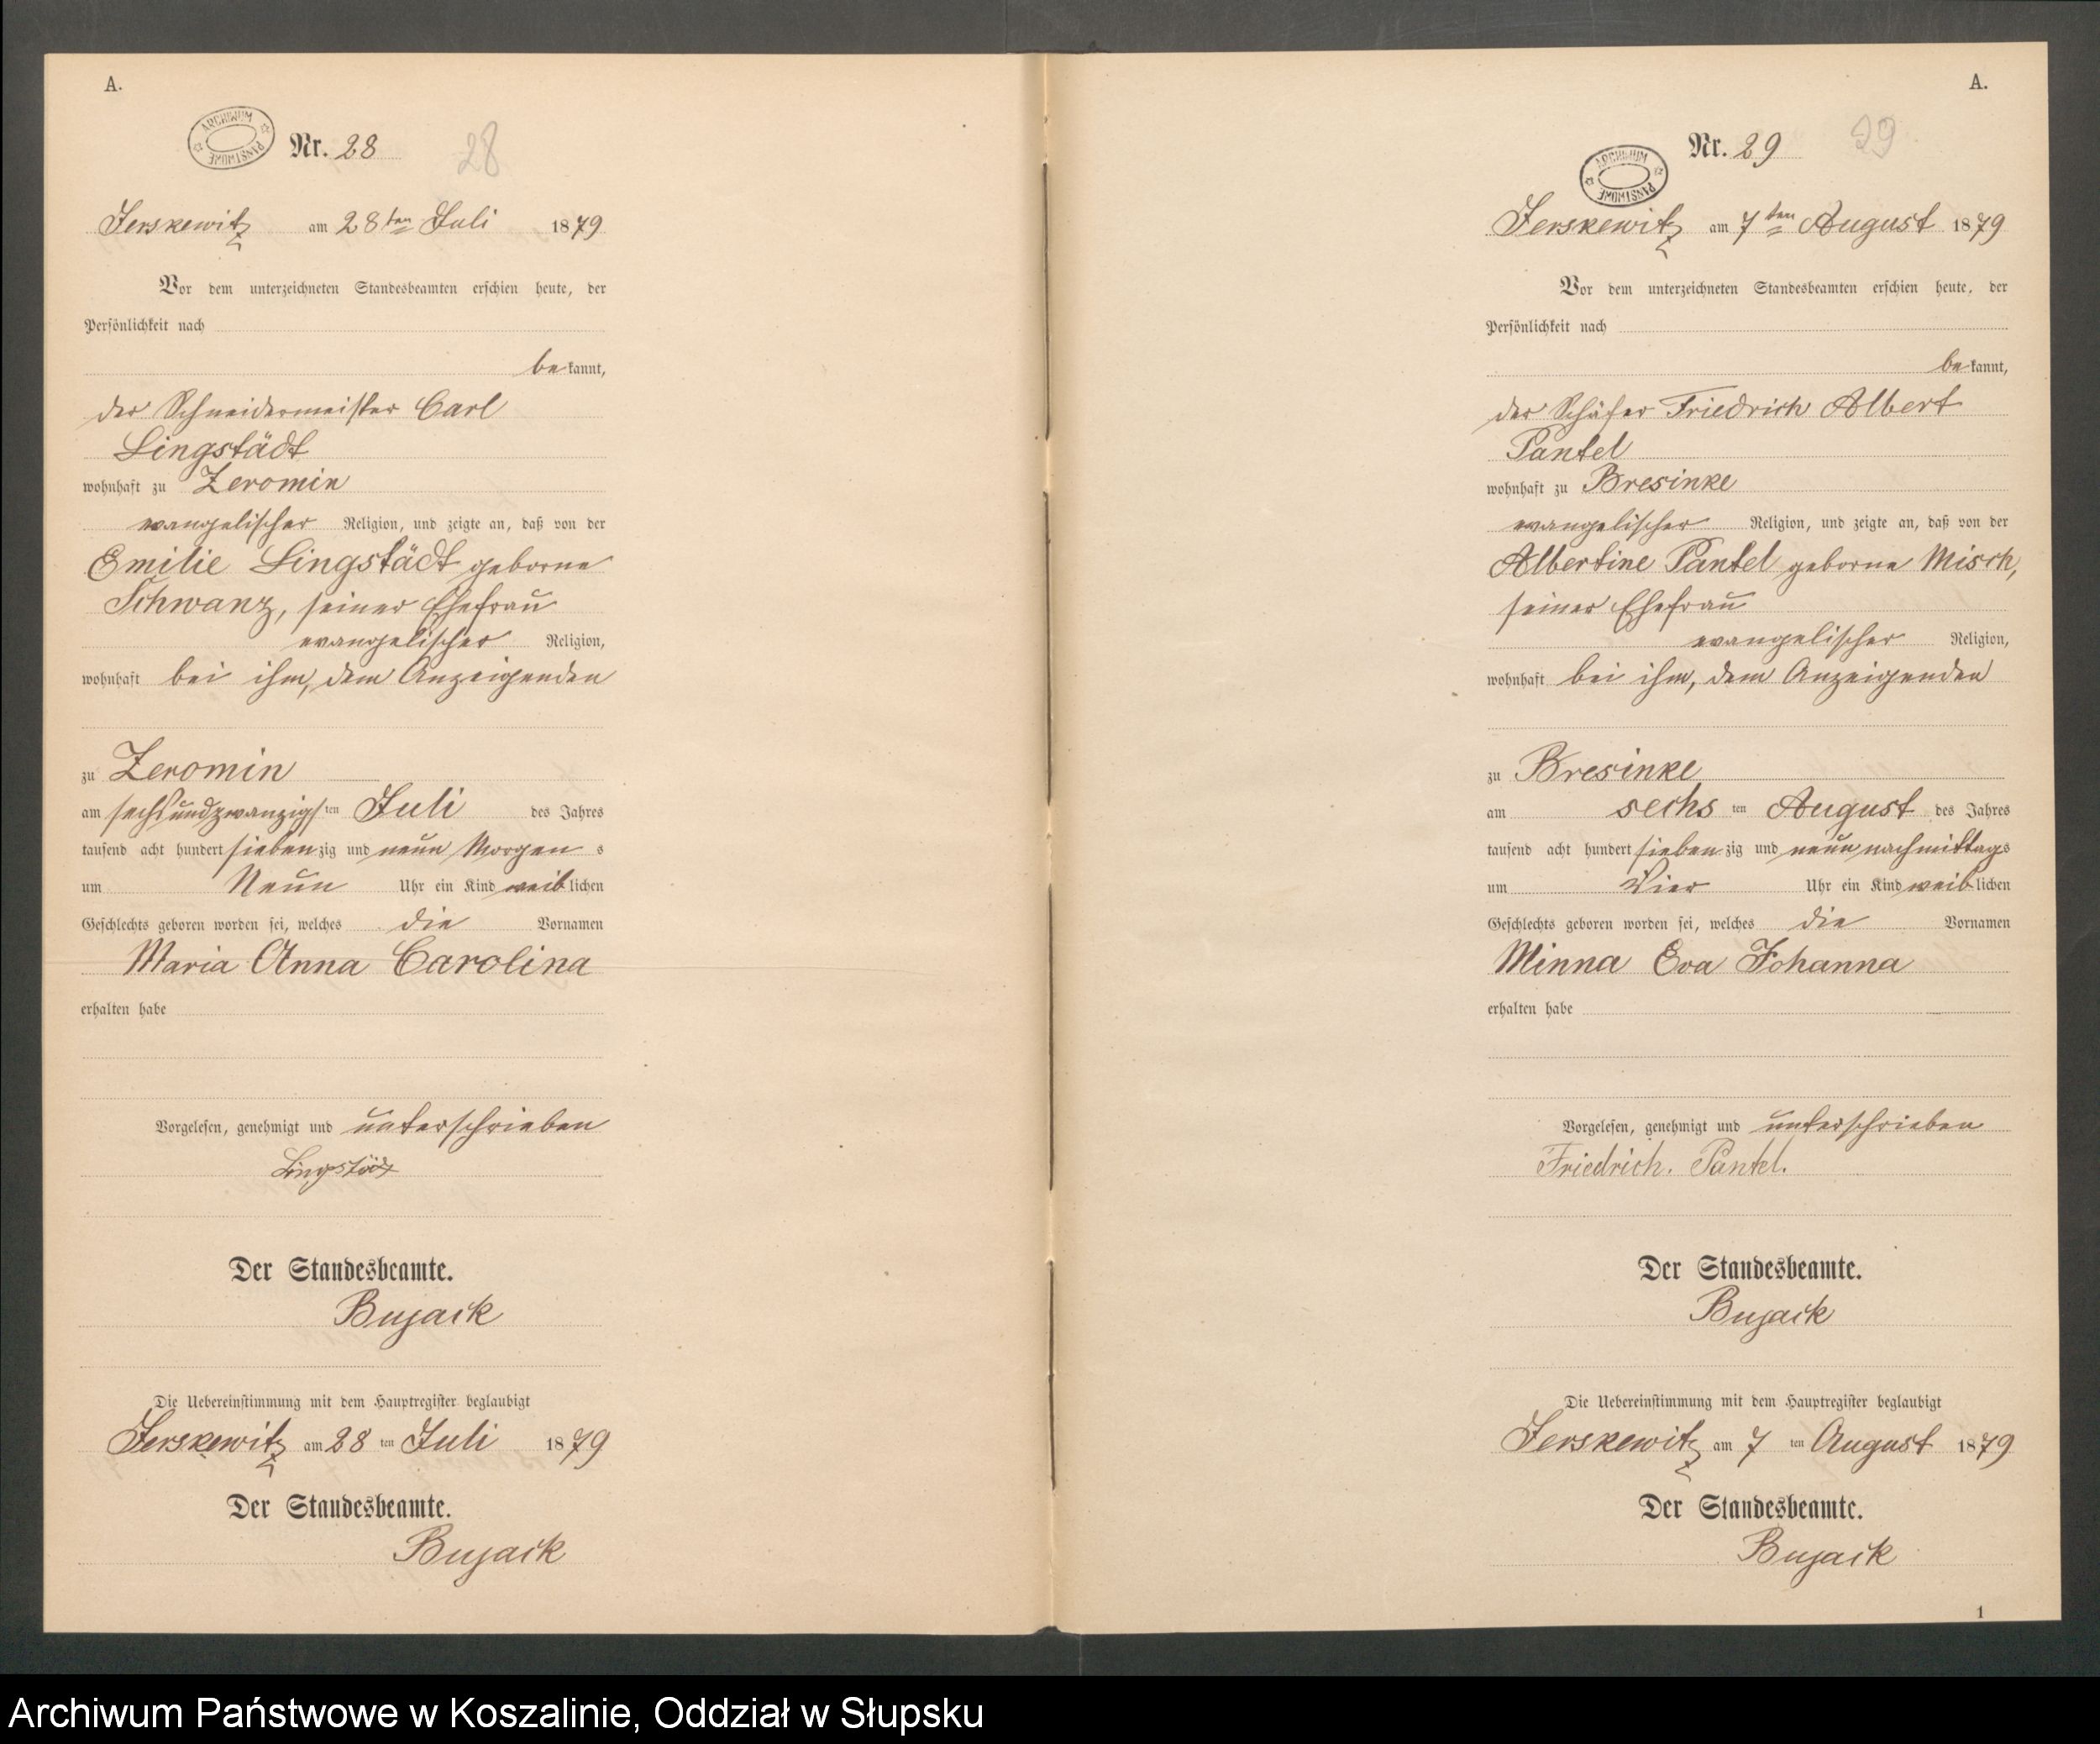 A.
ARCHIWUM PAŃSTWOWE
Nr. 28
28
Jerskewitz am 28ten Juli 1879
Vor dem unterzeichneten Standesbeamten erschien heute, der
Persönlichkeit nach
bekannt,
der Schneidermeister Carl
Lingstädt
wohnhaft zu Zeromin
evangelischer Religion, und zeigte an, daß von der
Emilie Lingstädt geborne
Schwanz, seiner Ehefrau
evangelischer Religion,
wohnhaft bei ihm, dem Anzeigenden
zu Zeromin
am sechsundzwanzigsten Juli des Jahres
tausend acht hundert siebenzig und neun Morgens
um Neun Uhr ein Kind weiblichen
Geschlechts geboren worden sei, welches die Vornamen
Maria Anna Carolina
erhalten habe
Vorgelesen, genehmigt und unterschrieben
Lingstädt
Der Standesbeamte.
Bujack
Die Uebereinstimmung mit dem Hauptregister beglaubigt
Jerskewitz am 28 ten Juli 1879
Der Standesbeamte.
Bujack
A.
ARCHIWUM PAŃSTWOWE
Nr. 29
29
Jerskewitz am 7ten August 1879
Vor dem unterzeichneten Standesbeamten erschien heute, der
Persönlichkeit nach
bekannt,
der Schäfer Friedrich Albert
Pantel
wohnhaft zu Bresinke
evangelischer Religion, und zeigte an, daß von der
Albertine Pantel geborne Misch,
seiner Ehefrau
evangelischer Religion,
wohnhaft bei ihm, dem Anzeigenden
zu Bresinke
am sechs ten August des Jahres
tausend acht hundert siebenzig und neun nachmittags
um Vier Uhr ein Kind weiblichen
Geschlechts geboren worden sei, welches die Vornamen
Minna Eva Johanna
erhalten habe
Vorgelesen, genehmigt und unterschrieben
Friedrich. Pantel.
Der Standesbeamte.
Bujack
Die Uebereinstimmung mit dem Hauptregister beglaubigt
Jerskewitz am 7 ten August 1879
Der Standesbeamte.
Bujack
1
Archiwum Państwowe w Koszalinie, Oddział w Słupsku